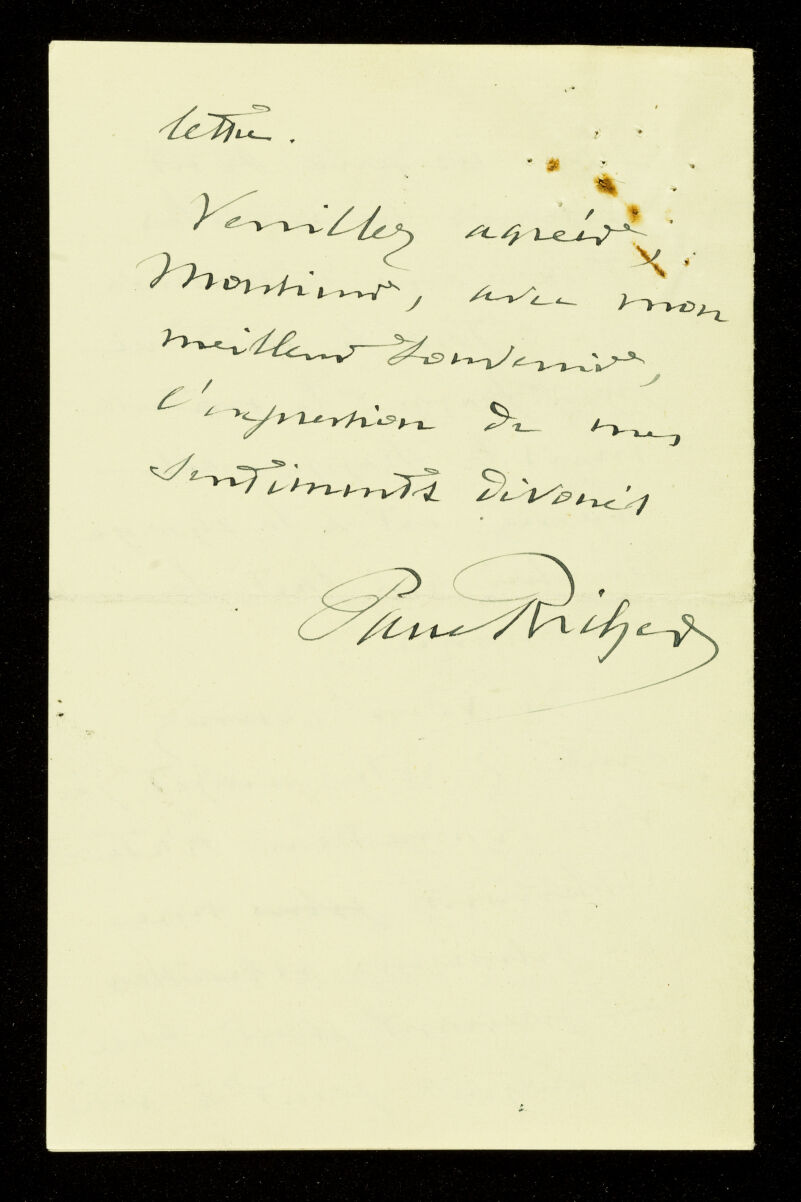 lettre.
Veuillez agréer,
Monsieur, avec mon
meilleur souvenir,
l'expression de mes
sentiments dévoués
Paul Richer